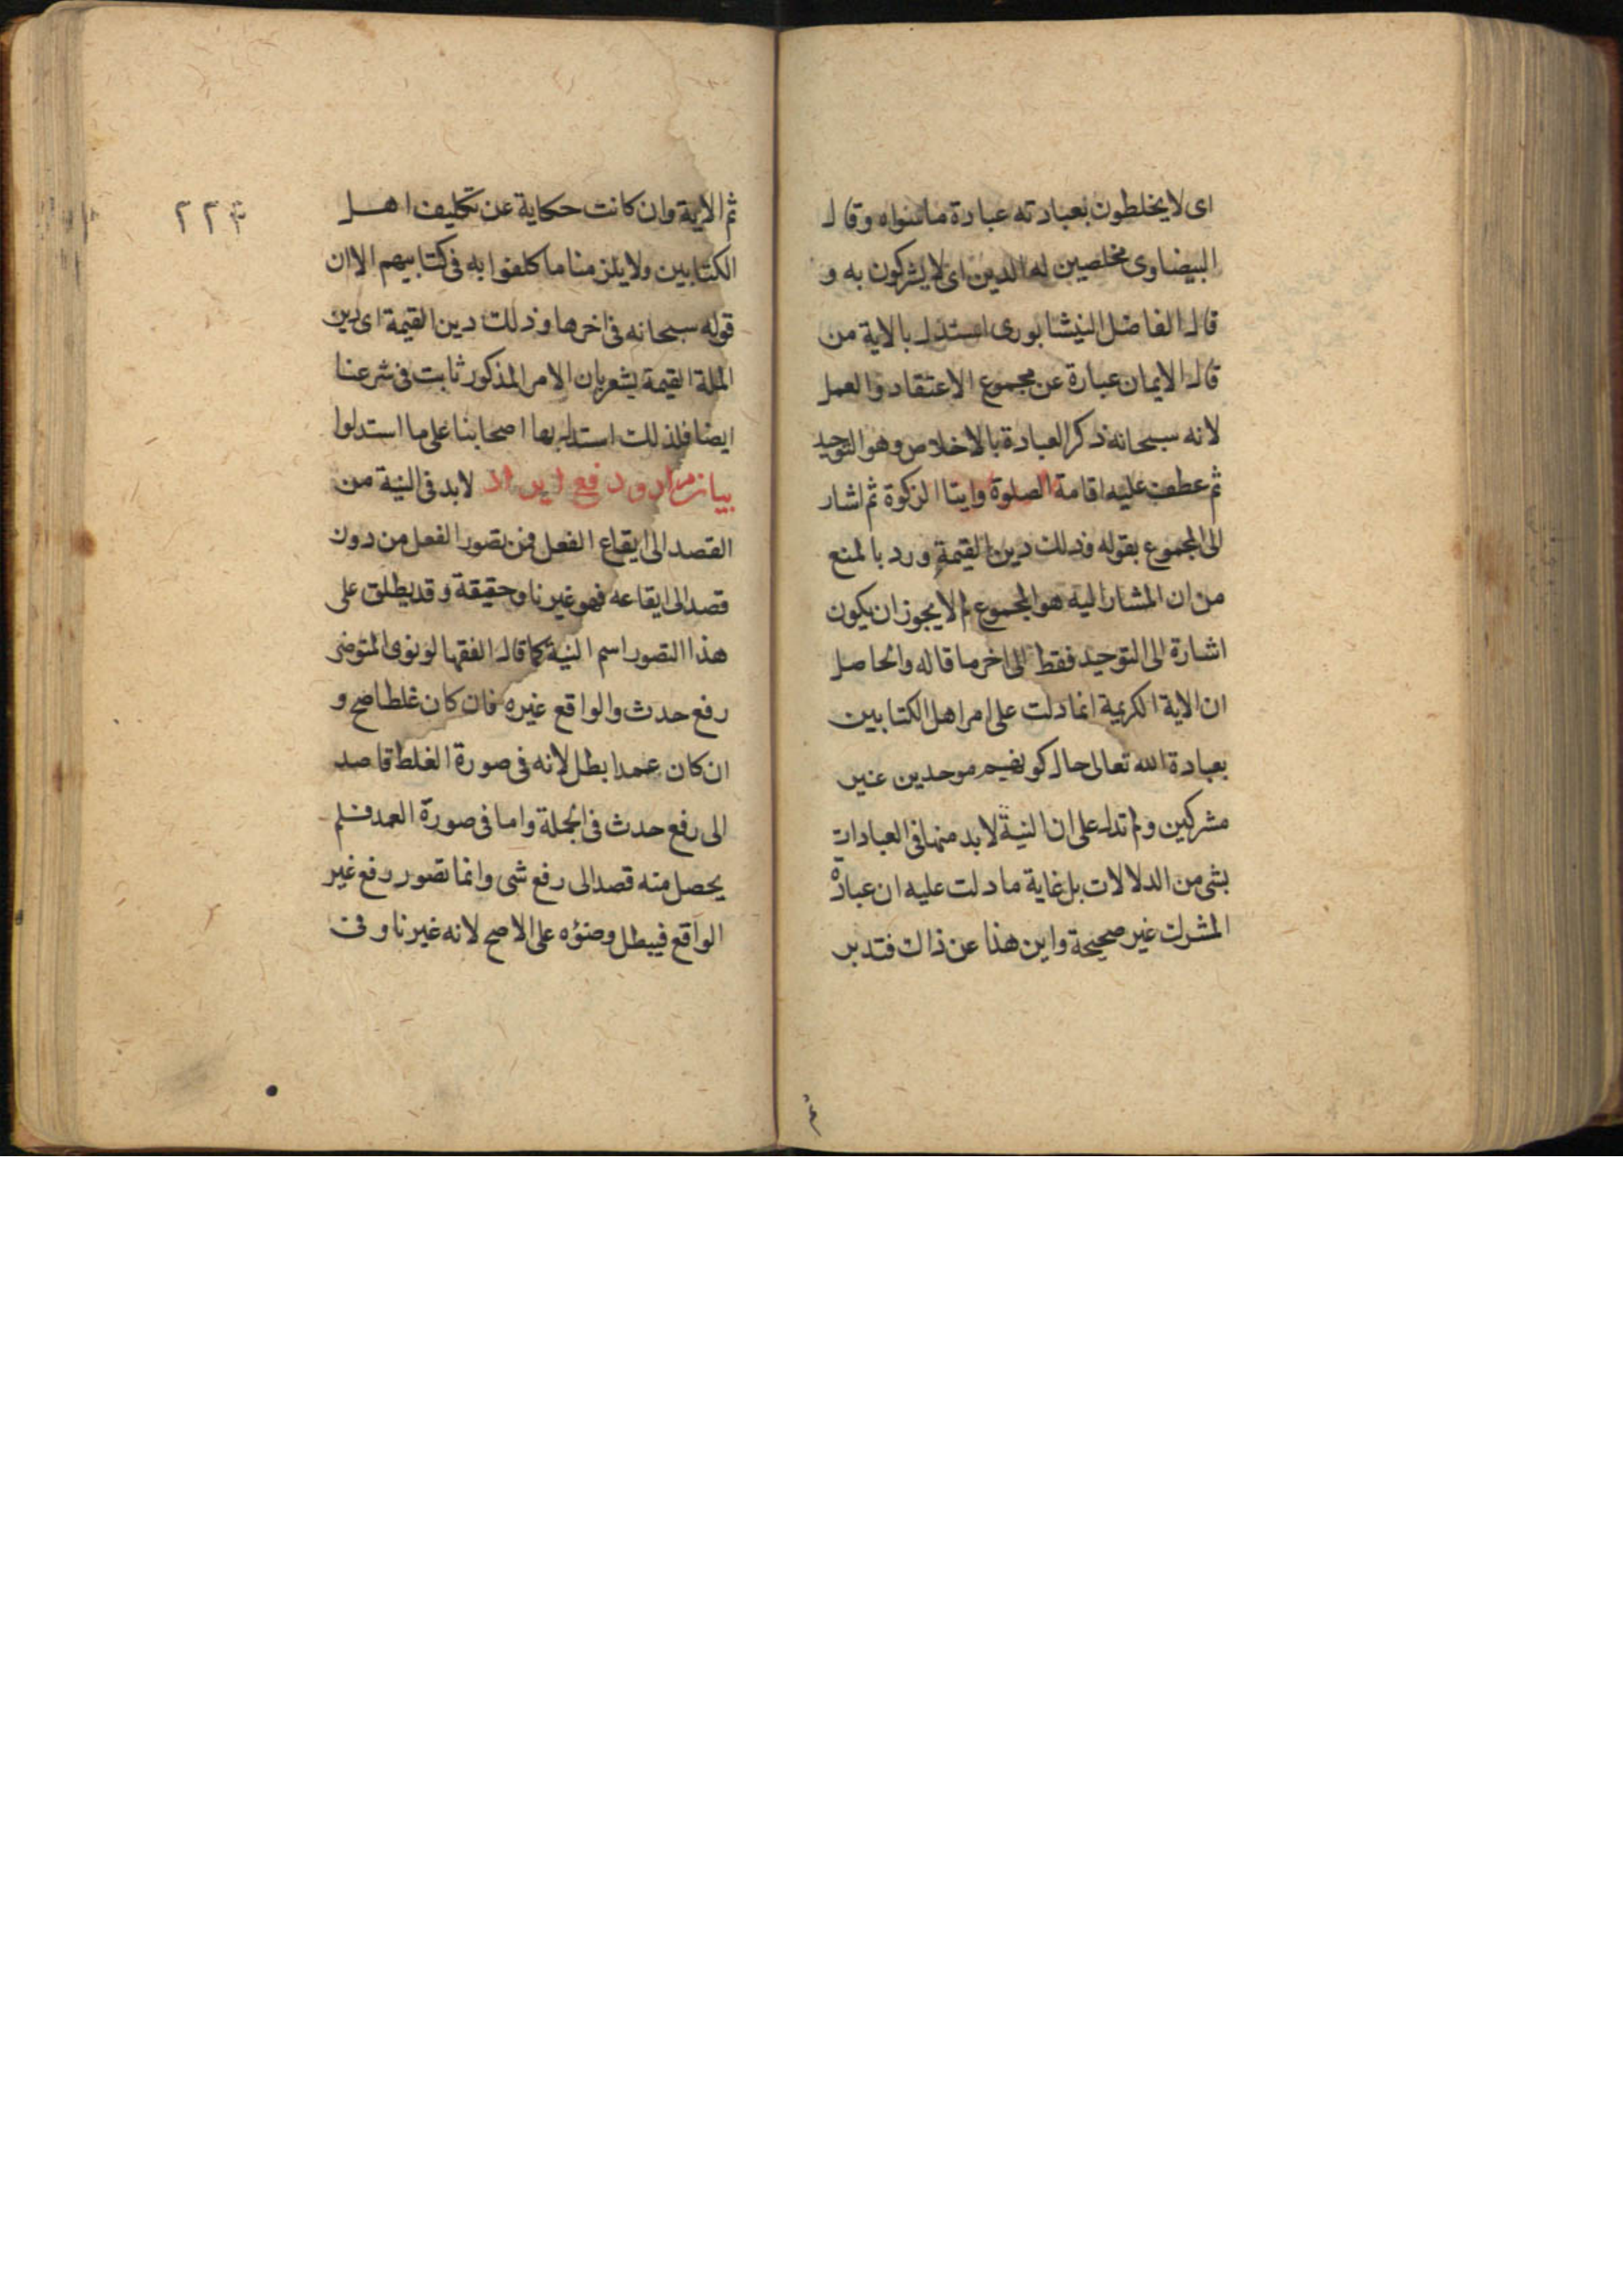 اى لا يخلطون بعبادته عبادة ماسواه وقال
البيضاوى مخلصين له الدين اى لا يشركون به و
قال الفاضل النيشابورى استدل بالاية من
قال الايمان عبارة عن مجموع الاعتقاد والعمل
لانه سبحانه ذكر العبادة بالاخلاص وهو التوحيد
ثم عطف عليه اقامة الصلوة وايتا الزكوة ثم اشار
الى المجموع بقوله وذلك دين القيمة ورد بالمنع
من ان المشار اليه هو المجموع لم لا يجوز ان يكون
اشارة الى التوحيد فقط الى اخر ما قاله والحاصل
ان الاية الكريمة انما دلت على امر اهل الكتابين
بعبادة الله تعالى حال كونهم موحدين غير
مشركين ولم تدل على ان النية لا بد منها فى العبادات
بشى من الدلالات بل غاية ما دلت عليه ان عبادة
المشرك غير صحيحة واين هذا عن ذاك فتدبر
ثم
ثم الاية وان كانت حكاية عن تكليف اهل
الكتابين ولا يلزمنا ما كلفوا به فى كتابيهم الا ان
قوله سبحانه فى اخرها وذلك دين القيمة اى دين
الملة القيمة يشعر بان الامر المذكور ثابت فى شرعنا
ايضا فلذلك استدل بها اصحابنا على ما استدلوا
بيان مراد ودفع ايراد لا بد فى النية من
القصد الى ايقاع الفعل فمن تصور الفعل من دون
قصد الى ايقاعه فهو غير ناو حقيقة وقد يطلق على
هذا التصور اسم النية كما قال الفقها لو نوى المتوضى
رفع حدث والواقع غيره فان كان غلطا صح و
ان كان عمدا بطل لانه فى صورة الغلط قاصد
الى رفع حدث فى الجملة واما فى صورة العمد فلم
يحصل منه قصد الى رفع شى وانما تصور رفع غير
الواقع فيبطل وضؤه على الاصح لانه غير ناو فى